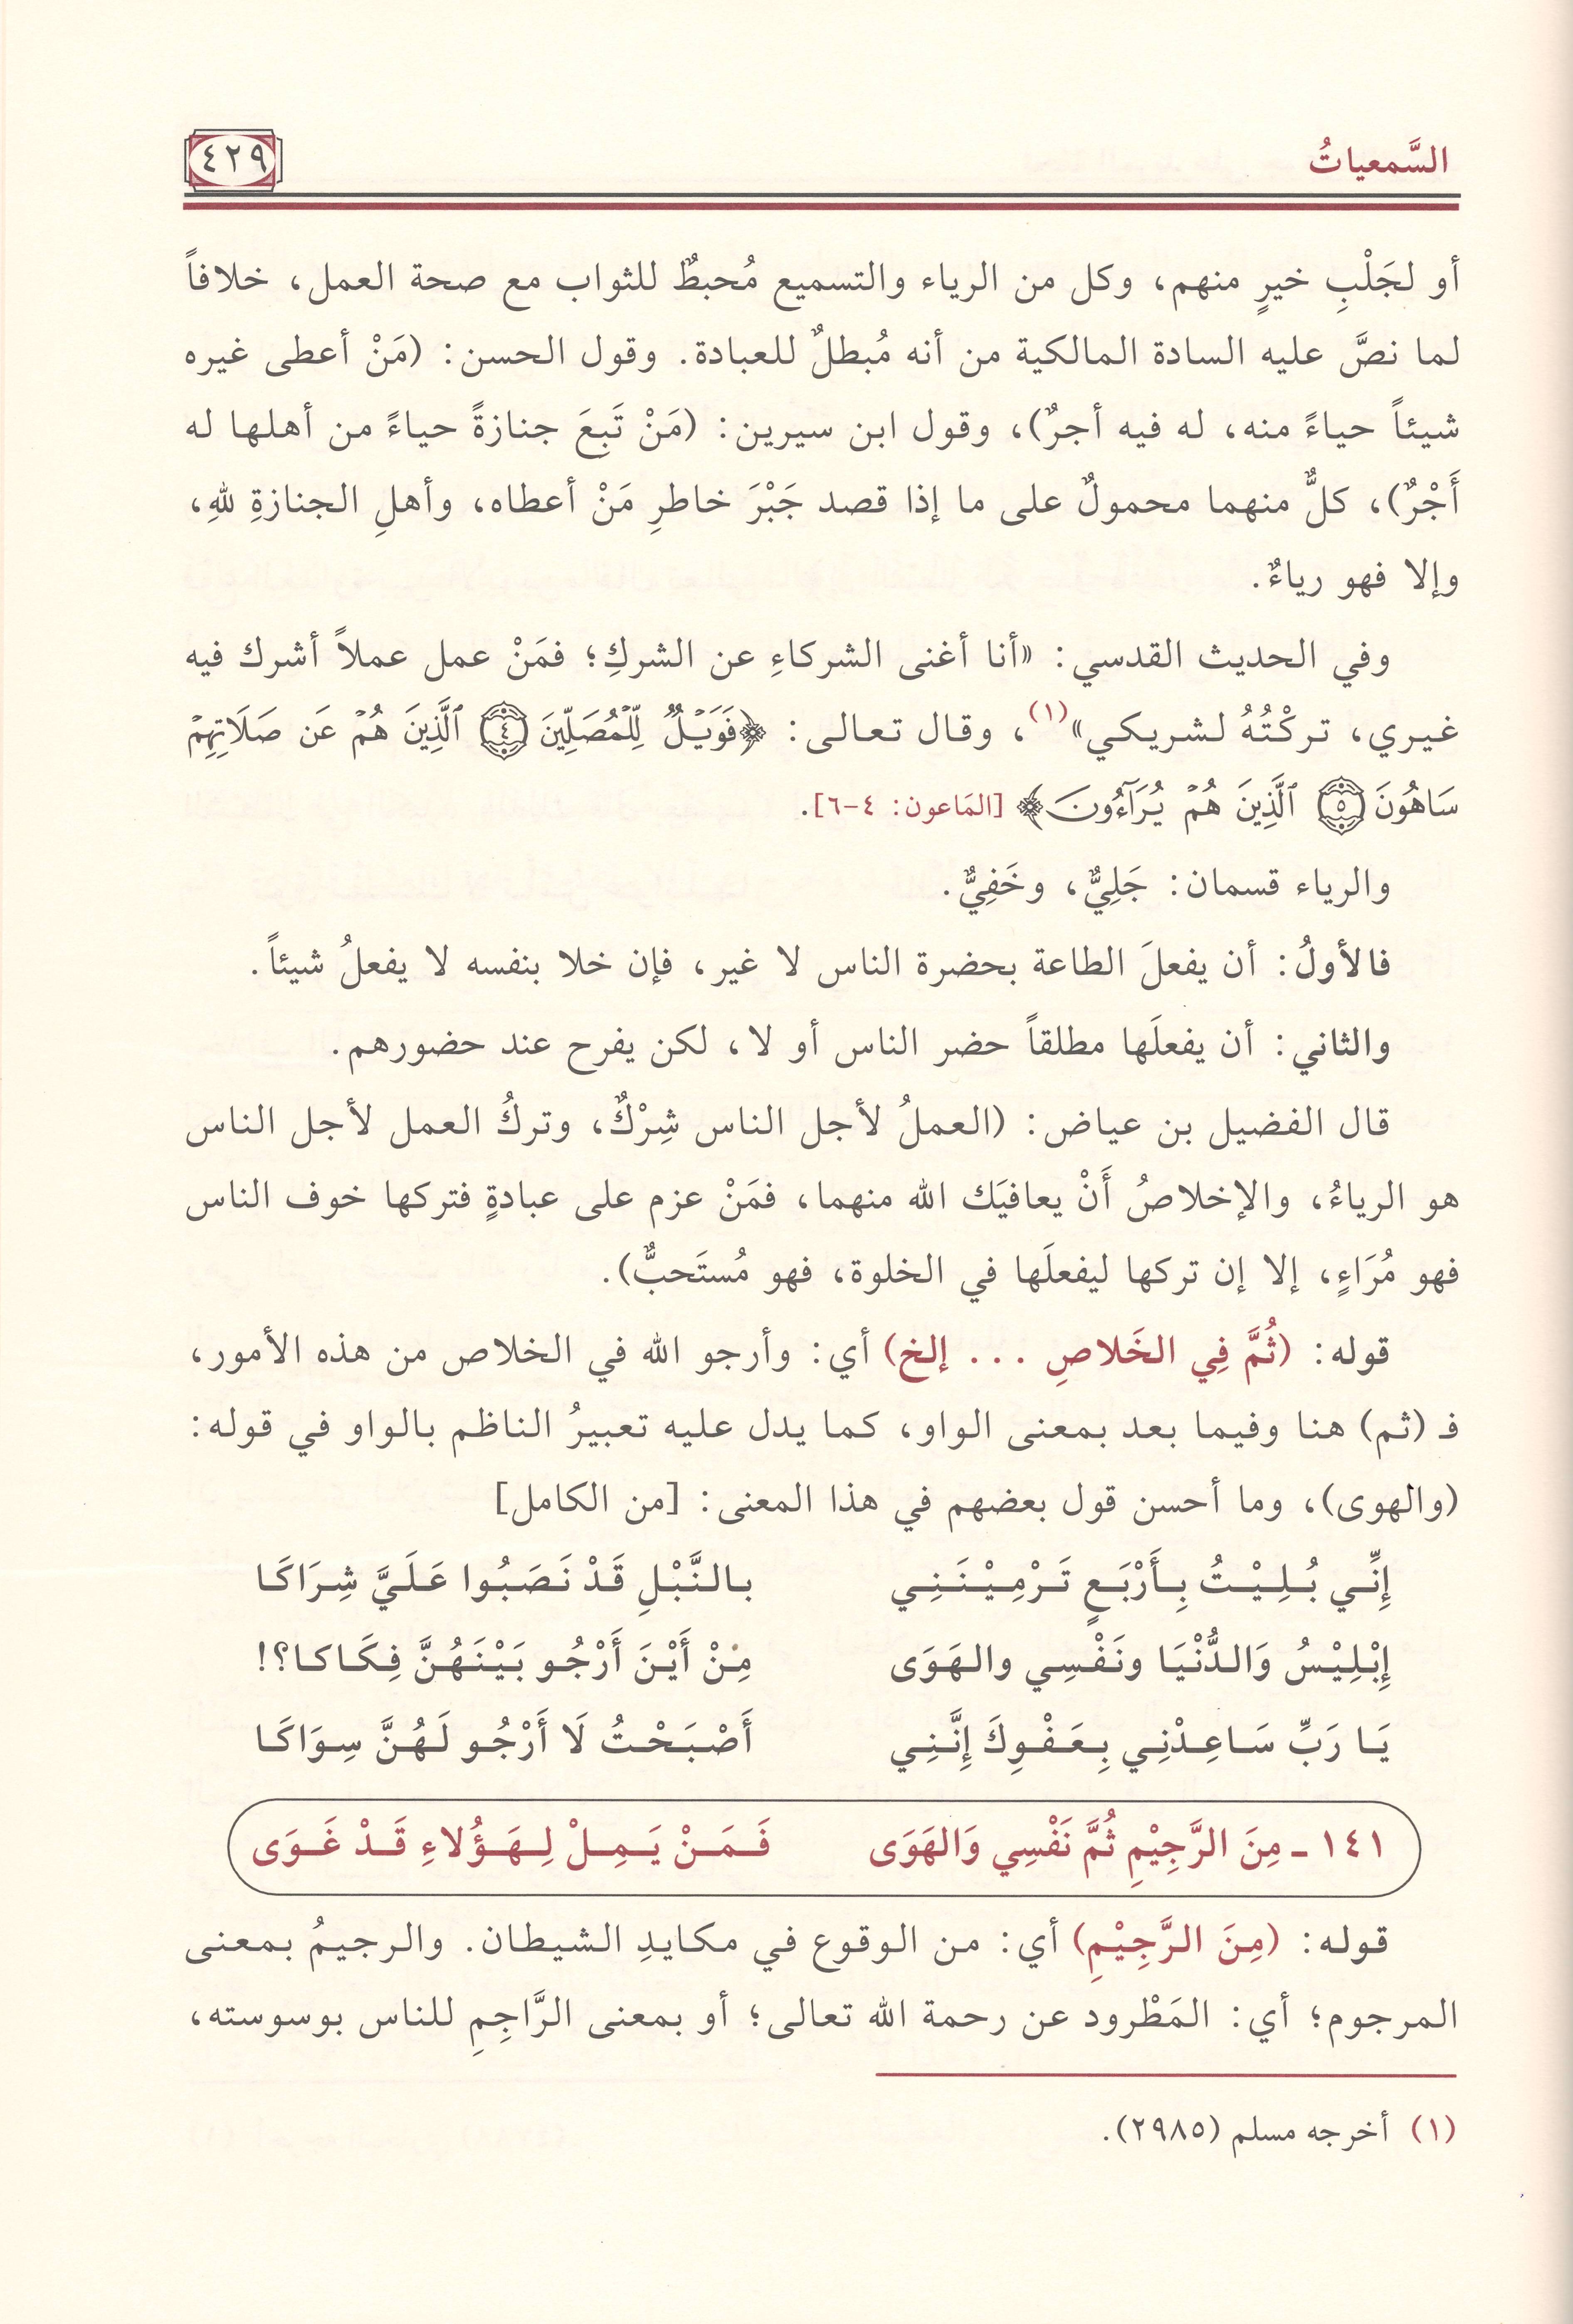 السَّمعياتُ
٤٢٩
أو لجَلْبِ خيرٍ منهم، وكل من الرياء والتسميع مُحبطٌ للثواب مع صحة العمل، خلافاً
لما نصَّ عليه السادة المالكية من أنه مُبطلٌ للعبادة. وقول الحسن: (مَنْ أعطى غيره
شيئاً حياءً منه، له فيه أجرٌ)، وقول ابن سيرين: (مَنْ تَبِعَ جنازةً حياءً من أهلها له
أَجْرٌ)، كلٌّ منهما محمولٌ على ما إذا قصد جَبْرَ خاطرِ مَنْ أعطاه، وأهلِ الجنازةِ للهِ،
وإلا فهو رياءٌ.
وفي الحديث القدسي: «أنا أغنى الشركاءِ عن الشركِ؛ فمَنْ عمل عملاً أشرك فيه
غيري، تركْتُهُ لشريكي»(١)، وقال تعالى: ﴿فَوَيۡلٞ لِّلۡمُصَلِّينَ ٤ ٱلَّذِينَ هُمۡ عَن صَلَاتِهِمۡ
سَاهُونَ ٥ ٱلَّذِينَ هُمۡ يُرَآءُونَ﴾ [المَاعون: ٤-٦].
والرياء قسمان: جَلِيٌّ، وخَفِيٌّ.
فالأولُ: أن يفعلَ الطاعة بحضرة الناس لا غير، فإن خلا بنفسه لا يفعلُ شيئاً.
والثاني: أن يفعلَها مطلقاً حضر الناس أو لا، لكن يفرح عند حضورهم.
قال الفضيل بن عياض: (العملُ لأجل الناس شِرْكٌ، وتركُ العمل لأجل الناس
هو الرياءُ، والإخلاصُ أَنْ يعافيَك الله منهما، فمَنْ عزم على عبادةٍ فتركها خوف الناس
فهو مُرَاءٍ، إلا إن تركها ليفعلَها في الخلوة، فهو مُستَحبٌّ).
قوله: (ثُمَّ فِي الخَلاصِ ... إلخ) أي: وأرجو الله في الخلاص من هذه الأمور،
فـ (ثم) هنا وفيما بعد بمعنى الواو، كما يدل عليه تعبيرُ الناظم بالواو في قوله:
(والهوى)، وما أحسن قول بعضهم في هذا المعنى: [من الكامل]
إِنِّي بُلِيْتُ بِأَرْبَعٍ تَرْمِيْنَنِي بالنَّبْلِ قَدْ نَصَبُوا عَلَيَّ شِرَاكَا
إِبْلِيْسُ وَالدُّنْيَا ونَفْسِي والهَوَى مِنْ أَيْنَ أَرْجُو بَيْنَهُنَّ فِكَاكا؟!
يَا رَبِّ سَاعِدْنِي بِعَفْوِكَ إِنَّنِي أَصْبَحْتُ لَا أَرْجُو لَهُنَّ سِوَاكَا
١٤١ - مِنَ الرَّجِيْمِ ثُمَّ نَفْسِي وَالهَوَى فَمَنْ يَمِلْ لِهَؤُلاءِ قَدْ غَوَى
قوله: (مِنَ الرَّجِيْمِ) أي: من الوقوع في مكايدِ الشيطان. والرجيمُ بمعنى
المرجوم؛ أي: المَطْرود عن رحمة الله تعالى؛ أو بمعنى الرَّاجِمِ للناس بوسوسته،
(١) أخرجه مسلم (٢٩٨٥).